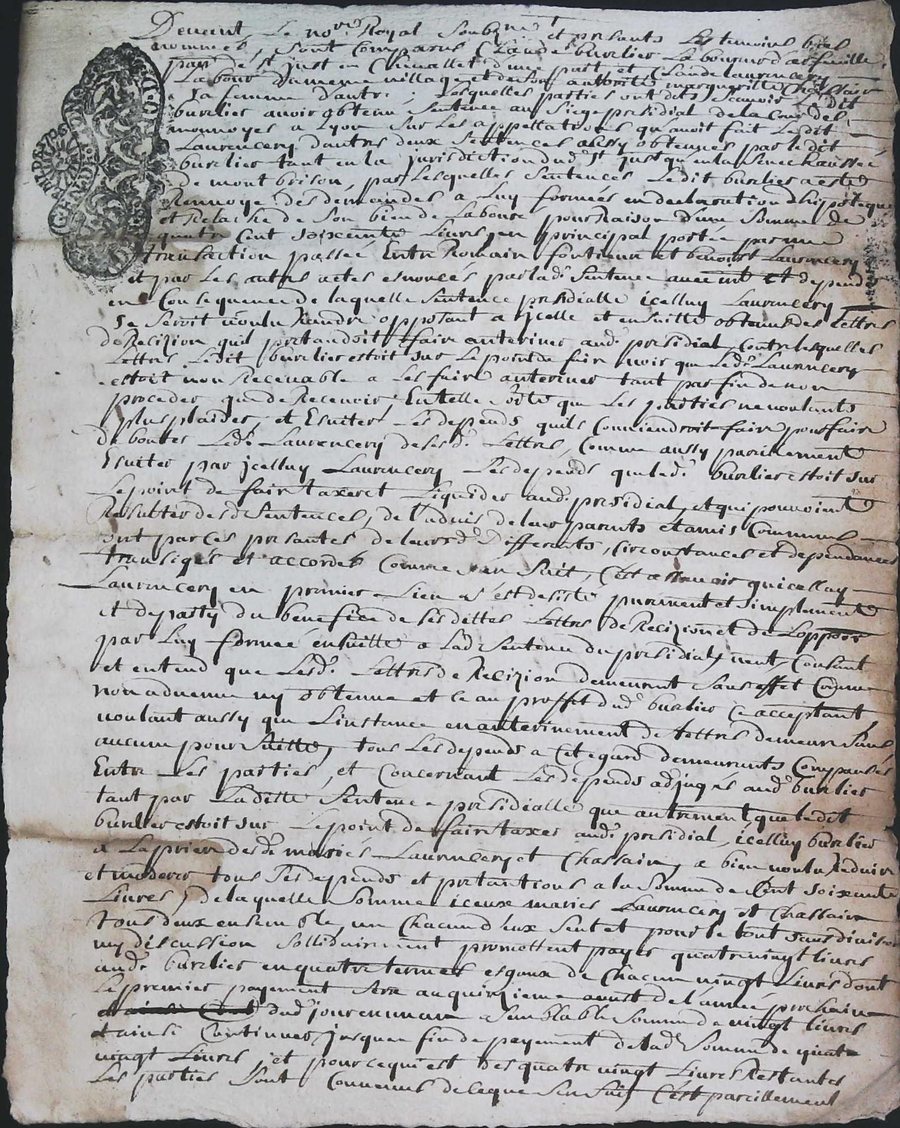 Devant Le nore Royal Soubzne et presants Les temoins bas
nommés, Sont Comparus Claude burelier Laboureur de
parr de st just en Chevallet d'une part, et Claude Laurencery
Labour du meme village et de Son authorité marguerite Chassain
Sa femme d'autre; Lesquelles parties ont dit Scavoir Ledit
burelier avoir obtenu Sentence au Siege presidial de la Cour des
monnoyes a Lyon Sur Les appellations qu'avoit fait Ledit
Laurencery d'autres deux Sentences aussy obtenues par ledit
burelier tant en la jurisdiction dud. st just qu'en la Senechaussée
de montbrison, par Lesquelles Sentences Ledit burelier a esté
Renvoyé des demandes a Luy formées en declaration d'hipoteque
et Relaché de Son bien de Laboure pour Raison d'une Somme de
quatre Cent soixente Livres en principal portée par une
transaction passée Entre Romain fontieur et benoist Laurencery
et par Les autres actes enoncés par lad. Sentence avec et depends
en Consequence de laquelle Sentence presidialle icelluy Laurencery
Se Seroit voulu Randre opposant a jcelle et ensuitte obtenu des Lettres
de Recizion qu'il pretandoit faire anteriner aud. presidial Contre lesquelles
Lettres Ledit burelier estoit Sur Le point de faire voir que Led. Laurencery
estoit non Recevable a Les faire anteriner tant par fin de non
proceder que de Recevoir; En telle Sorte que Les parties ne voulants
plus plaider, et Esviter Les depends qu'ils Conviendroit faire pour faire
debouter Led. Laurencery de Sesd. Lettres, Comme aussy pareillement
Esviter par jcelluy Laurencery Les depends que led. burelier estoit Sur
Le point de faire taxer et Liquider aud. presidial, et qui pouvoient
Resulter desd. Sentences, de L'advis de leur parents et amis Communs
ont par ces presantes de leursd. differents, circonstances et dependances
transigés et accordés Comme s'en Suit, C'est a scavoir qu'icelluy
Laurencery en premier Lieu s'est desisté purement et simplement
et departy du benefice de Sesdittes Lettres de Recizion et de L'oppon
par Luy formée ensuitte a Lad. Sentence du presidial, veut Consent
et entend que Lesd. Lettres de Recizion demeurent Sans effet Comme
non advenue ny obtenue et ce au proffit dud. burelier Ce acceptant
voulant aussy que L'instance en anterinement de Lettres demeure Sans
aucune pour Suitte, tous Les depends a Cet egard demeurants Compansés
Entre Les parties, et Concernant Les depends adjugés aud. burelier
tant par Laditte Sentence presidialle que autrement que ledit
burelier estoit sur Le point de faire taxer aud. presidial, icelluy burelier
a La priere desd. mariés Laurencery et Chassain, a bien voulu Reduire
et moderer tous Ses depends et pretantions a la Somme de Cent soixente
Livres, de laquelle Somme iceux mariés Laurencery et Chassain
tous deux ensemble, un Chacun d'eux Seul et pour le tout Sans division
ny discussion Sollidairement promettent payer quatre vingt Livres
aud. burelier en quatre termes esgaux de Chacun vingt Livres dont
Le premier payement Sera au quinzieme aoust de L'année prochaine
dud. jour en un an Semblable Somme de vingt Livres
et ainsi Continuer jusques a fin de payement de lad. Somme de quatre
vingt Livres, et pour ce qui est des quatre vingt Livres Restantes
Les parties Sont Convenus de ce que S'en Suit C'est pareillement